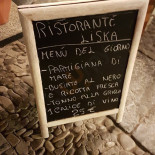 RISTORANTE
LISKA
MENÚ DEL GIORNO
-PARMIGIANA DI
MARE
-BUSIATE AL NERO
E RICOTTA FRESCA
-TONNO ALLA GRIGLIA
1 CALICE DI VINO
25 €